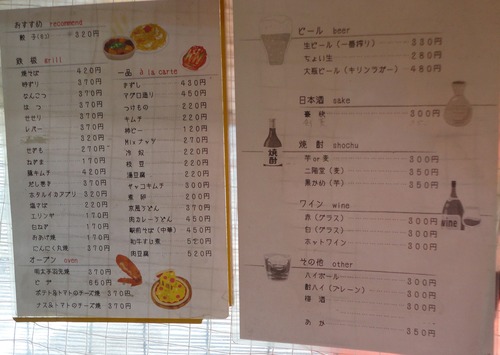 おすすめ recommend
餃子(6コ) 320円
鉄板 grill
焼そば 420円
時ずり 370円
なんこつ 370円
はつ 370円
せせり 370円
レバー 370円
320円
せぎも 270円
ねぎま 170円
豚キムチ 420円
だし巻き 370円
ホタルイカアブリ 320円
塩そば 220円
エリンギ 170円
白ねぎ 170円
おあげ焼 170円
にんにく丸焼 370円
オーブン oven
明太子羽先焼 370円
ピザ 850円
ポテト&トマトのチーズ焼 370円
ナス&トマトのチーズ焼 370円
一品 A la carte
きずし 430円
マグロ造り 450円
つけもの 220円
キムチ 220円
柿ピー 120円
Mixナッツ 270円
冷奴 220円
枝豆 220円
湯豆腐 220円
チャンコキムチ 300円
煮卵 200円
京風うどん 370円
肉カレーうどん 450円
駅前そば(中華) 450円
和牛すじ煮 520円
肉豆腐 520円
ビール beer
生ビール(一番搾り) 330円
ちょい生 280円
大瓶ビール(キリンラガー) 480円
日本酒 sake
300円
焼酎 shochu
焼酎
芋or麦 300円
二階堂(麦) 350円
黒かめ(芋) 350円
ワイン wine
wine
赤(グラス) 300円
白(グラス) 300円
ホットワイン 300円
その他 other
ハイボール 300円
酎ハイ(プレーン) 300円
梅酒 300円
300円
350円